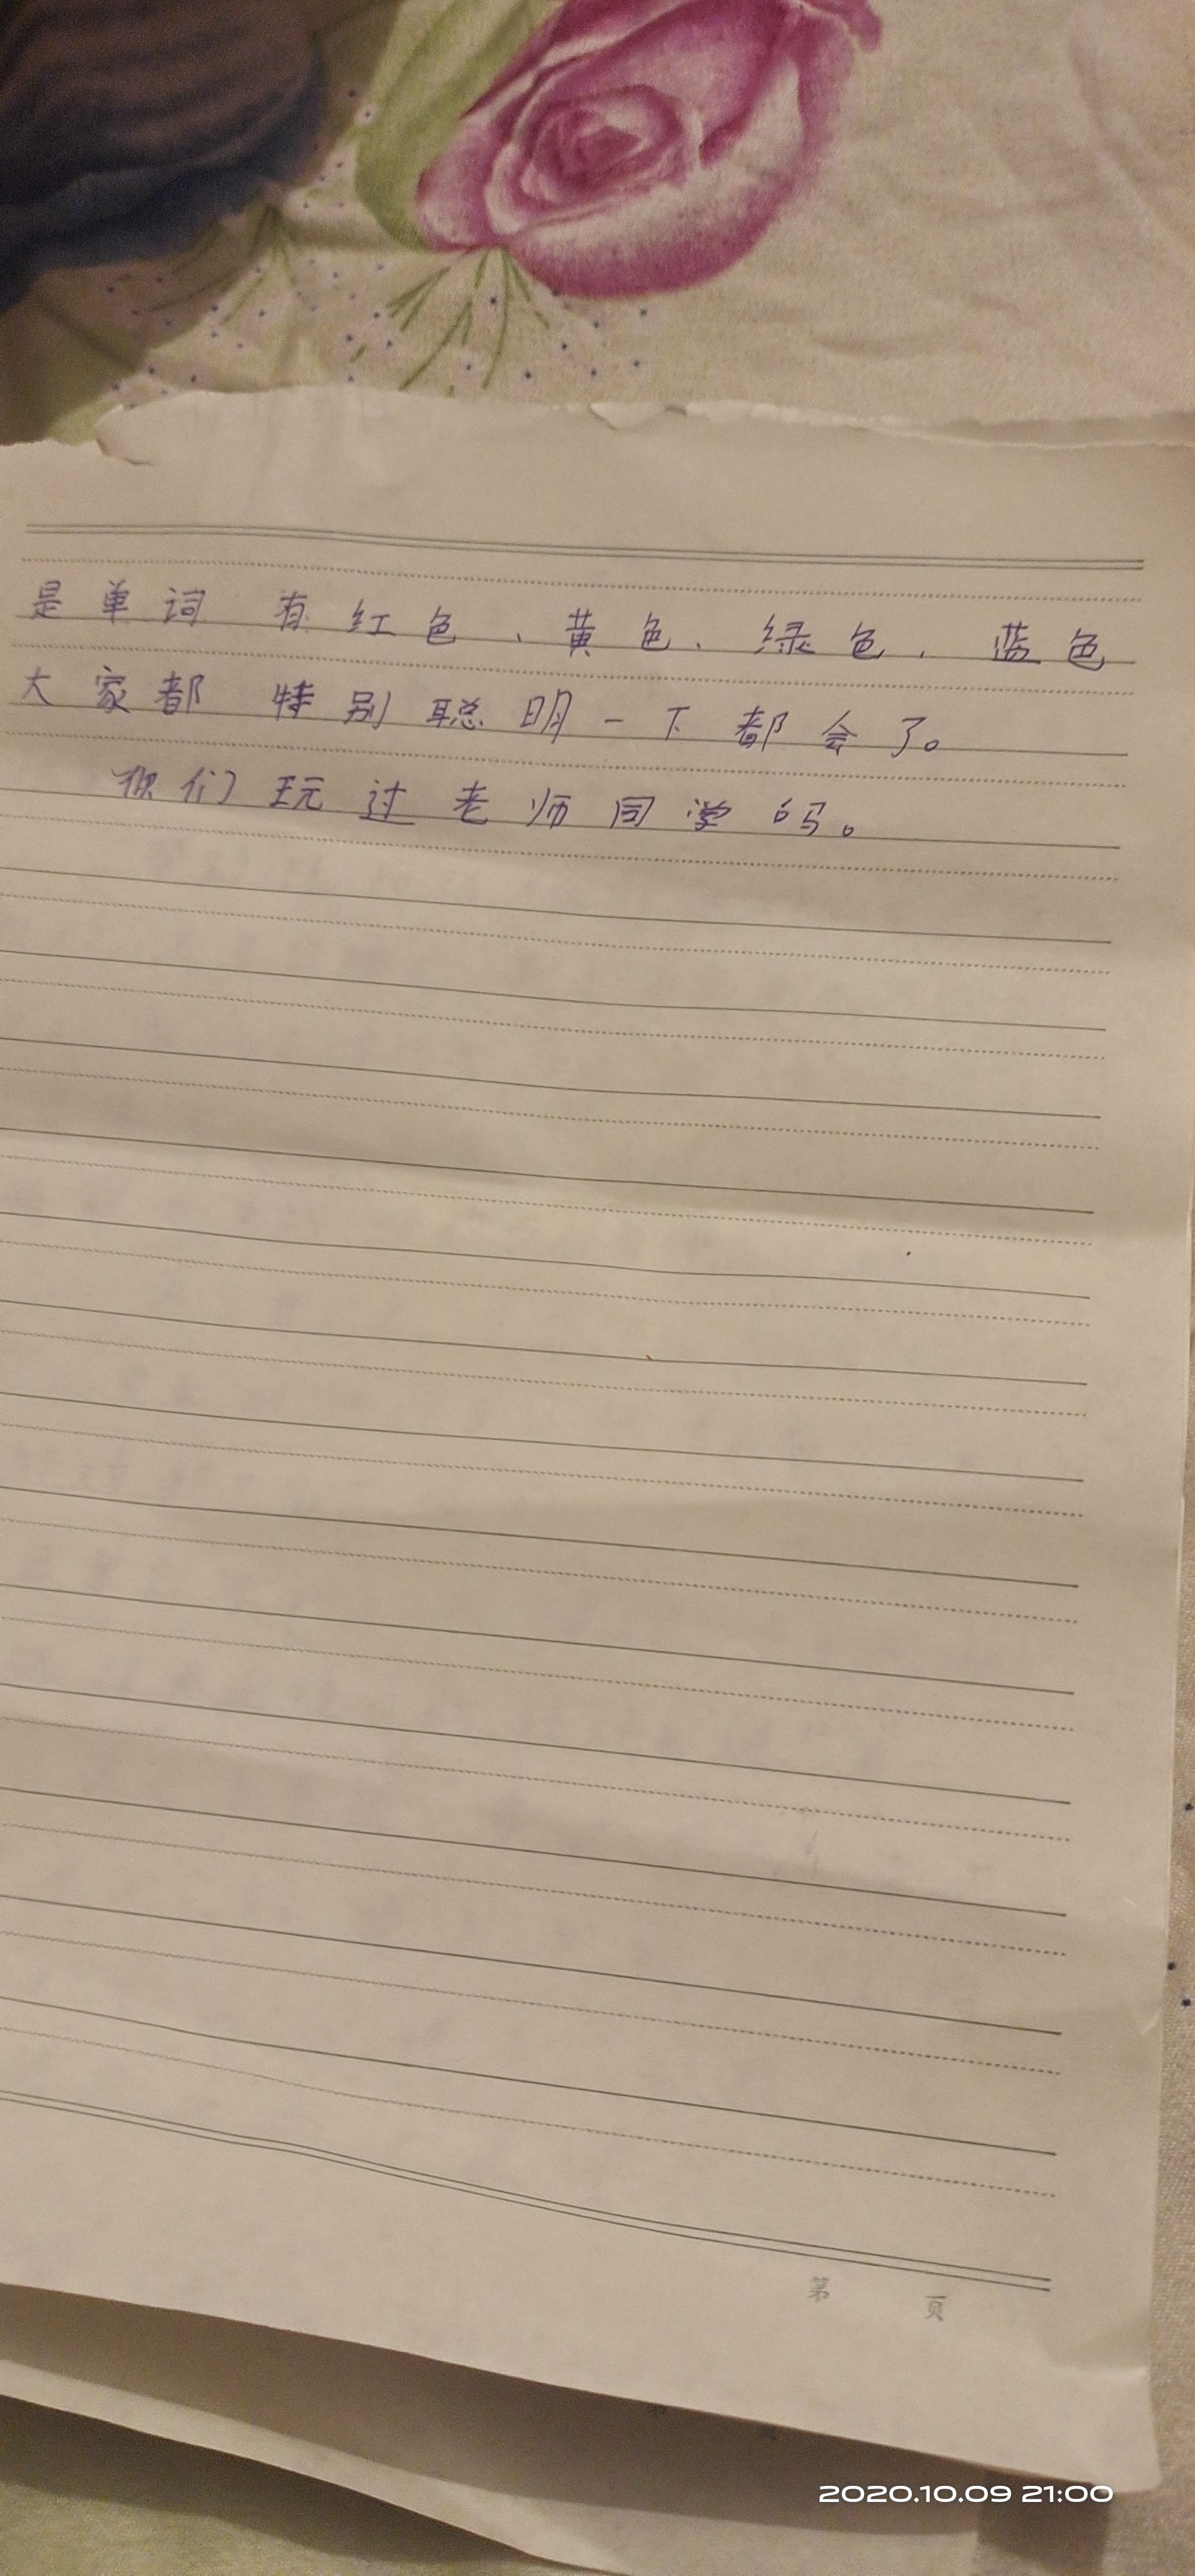 是单词 有红色、黄色、绿色、蓝色
大家都特别聪明一下都会了。
你们玩过老师同学吗。
第 页
2020.10.09 21:00